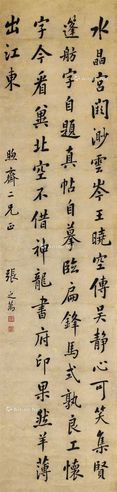 水晶宮闕渺雲岑王曉空傳吳靜心可笑集賢
蓬舫字自題真帖自摹臨扁鋒馬式孰良工懷
字今看冀北空不借神龍書府印果然羊薄
出江東
煦齋二兄正
張之萬